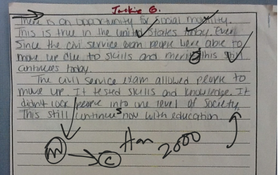 Justine G.
There is an opportunity for social mobility.
This is true in the United States today. Even
Since the civil service exam people were able to
move up due to skills and merit this
continues today
The civil service exam allowed people to
move up. It tested skills and knowledge. It
didn't lock people into one level of society.
This still continues now with education
W C Han 2000